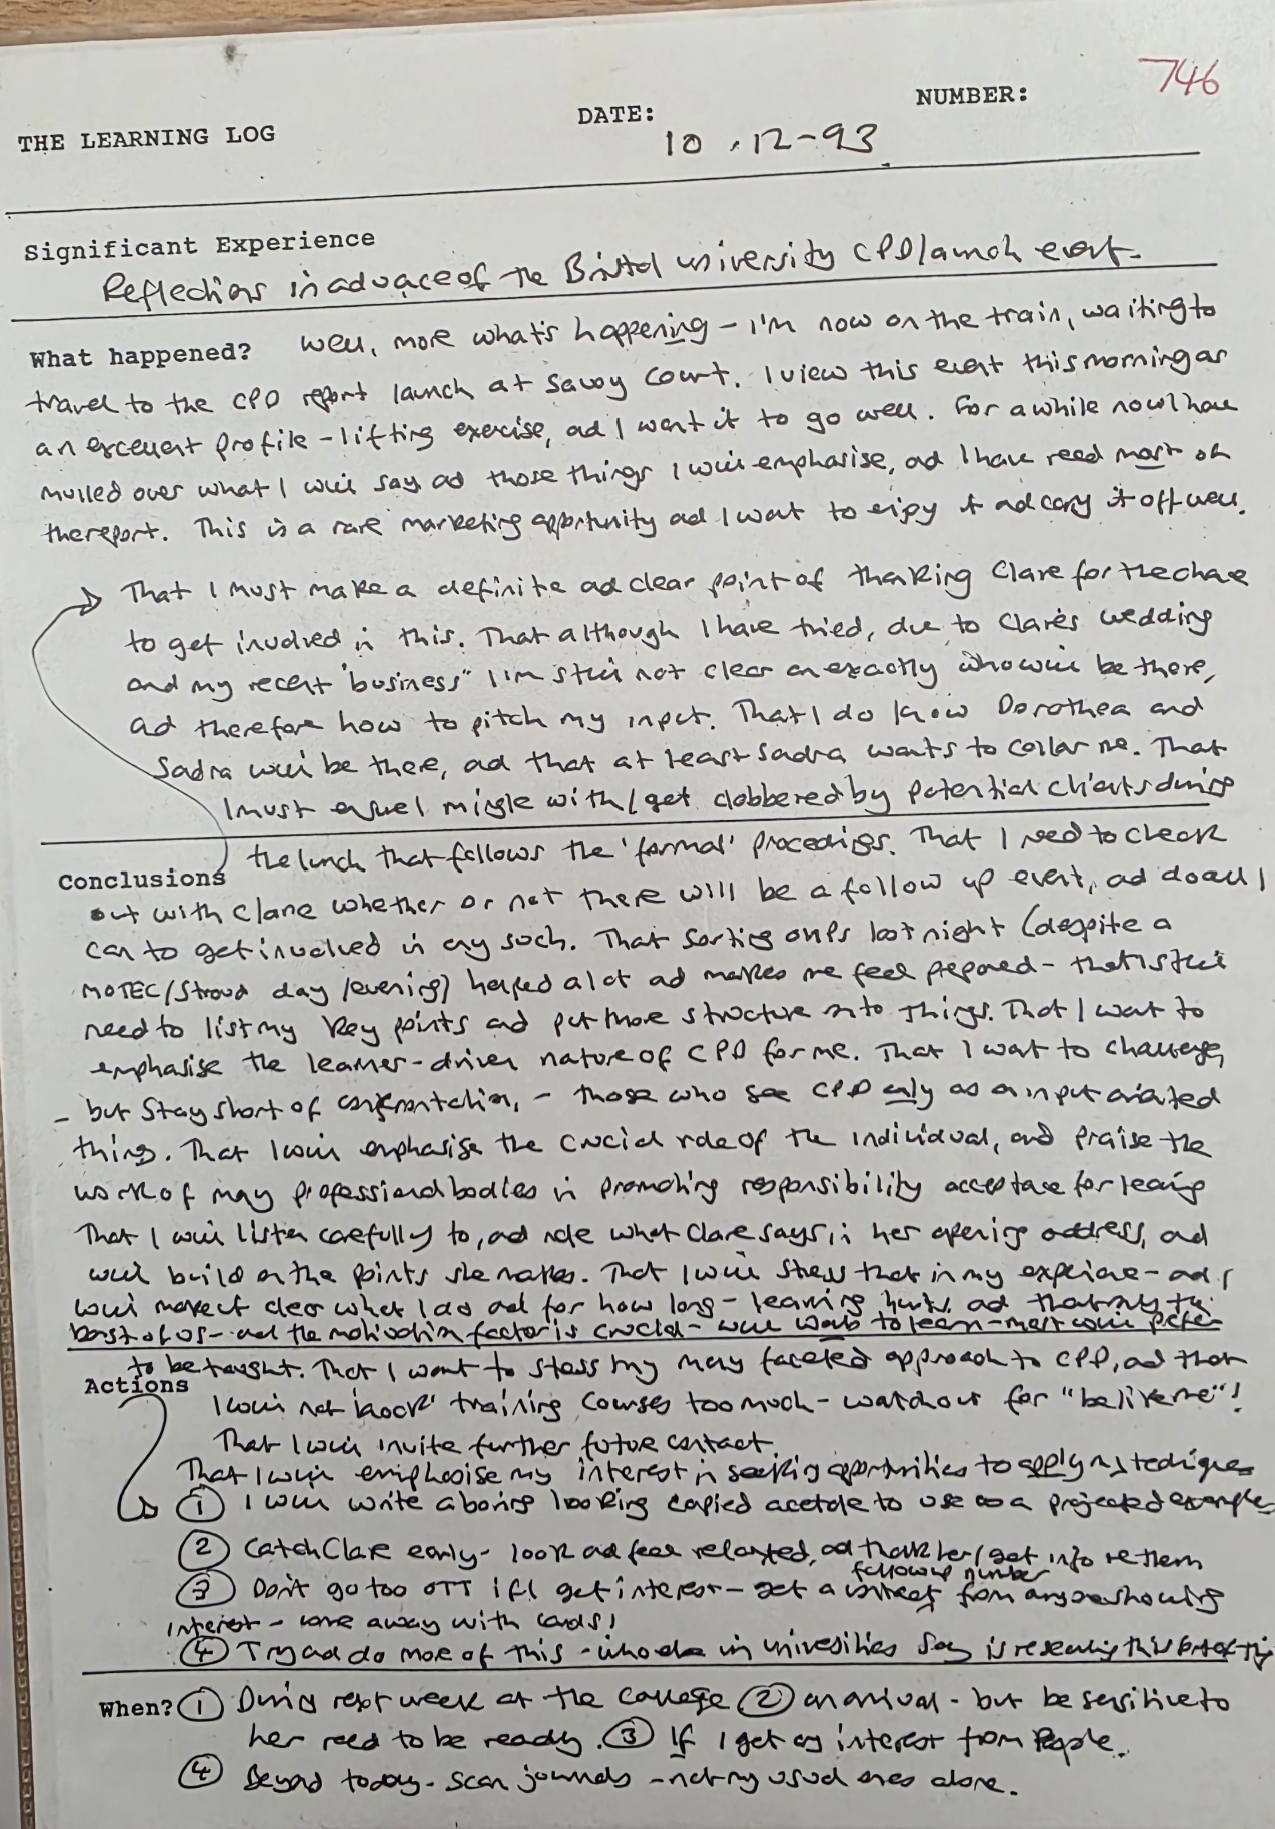 746
THE LEARNING LOG DATE: NUMBER:
10.12-93
Significant Experience
Reflections in advance of the Bristol university CPD launch event.
What happened? Well, more what's happening - I'm now on the train, waiting to
travel to the CPD report launch at Savoy Court. I view this event this morning as
an excellent profile-lifting exercise, and I want it to go well. For a while now I have
mulled over what I will say and those things I will emphasise, and I have read most of
the report. This is a rare marketing opportunity and I want to enjoy it and carry it off well.
That I must make a definite and clear point of thanking Clare for the chance
to get involved in this. That although I have tried, due to Clare's wedding
and my recent "business" I'm still not clear on exactly who will be there,
and therefore how to pitch my input. That I do know Dorothea and
Sandra will be there, and that at least Sandra wants to collar me. That
I must ensure I mingle with/get clobbered by potential clients during
the lunch that follows the 'formal' proceedings. That I need to check
Conclusions
out with Clare whether or not there will be a follow up event, and do all I
can to get involved in any such. That sorting OHPs last night (despite a
MOTEC/Stroud day/evening) helped a lot and makes me feel prepared - that I still
need to list my key points and put more structure into things. That I want to
emphasise the learner-driven nature of CPD for me. That I want to challenge,
- but stay short of confrontation, - those who see CPD only as an input oriented
thing. That I will emphasise the crucial role of the individual, and praise the
work of many professional bodies in promoting responsibility acceptance for learning
That I will listen carefully to, and note what Clare says in her opening address, and
will build on the points she makes. That I will stress that in my experience - and I
will make it clear what I do and for how long - learning hurts, and that only the
best of us - and the motivation factor is crucial - will want to learn - most will prefer
to be taught. That I want to stress my many faceted approach to CPD, and that
Actions
I will not 'knock' training courses too much - watch out for "be like me"!
That I will invite further future contact.
That I will emphasise my interest in seeking opportunities to apply my techniques
① I will write a boring looking copied acetate to use as a projected example
② Catch Clare early - look and feel relaxed, and thank her/get info re them
followup number
③ Don't go too OTT if I get interest - get a contact from anyone showing
interest - come away with cards!
④ Try and do more of this - who else in universities say is researching this sort of thing
When? ① During next week at the college ② on arrival - but be sensitive to
her need to be ready. ③ If I get any interest from people.
④ Beyond today - scan journals - not my usual ones alone.